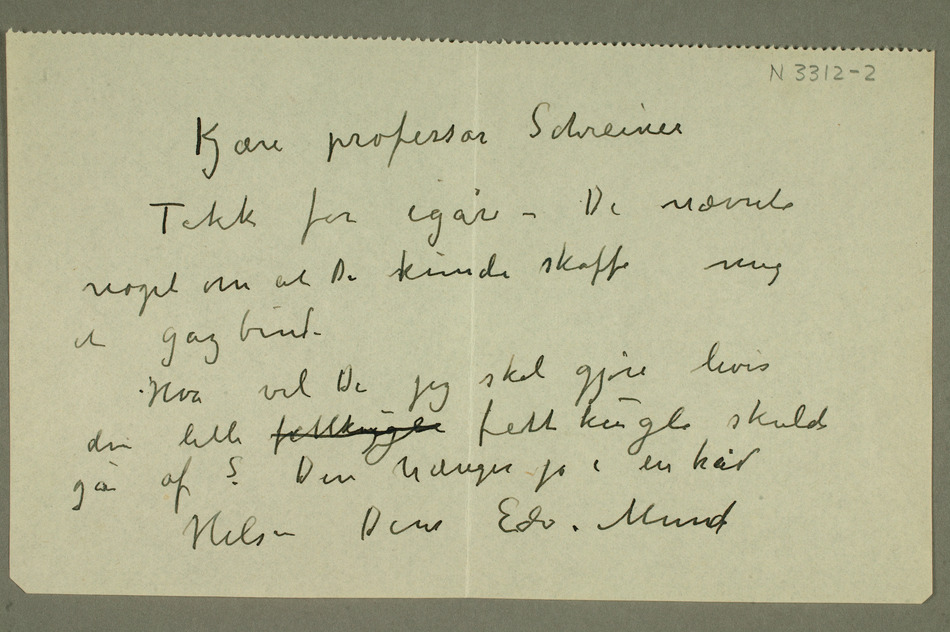 N 3312-2
Kjære professor Schreiner
Takk for igår – De nævnte
noget om at De kunde skaffe mig
et gazbind.
Hva vil De jeg skal gjøre hvis
den lille fettkugle fettkugle skuld
gå af? Den hænger jo i en hår
Hilsen Deres Edv. Munch